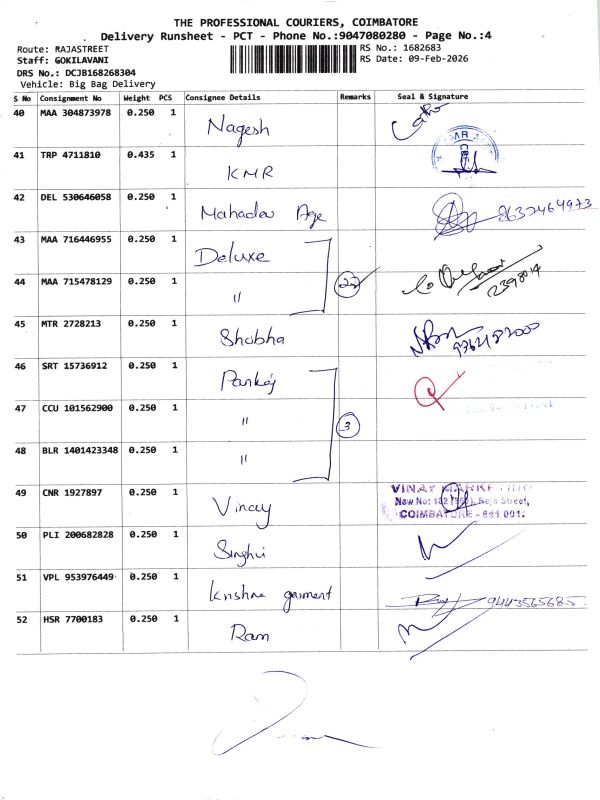 THE PROFESSIONAL COURIERS, COIMBATORE
Delivery Runsheet - PCT - Phone No.:9047080280 - Page No.:4
Route: RAJASTREET
RS No.: 1682683
Staff: GOKILAVANI
RS Date: 09-Feb-2026
DRS No.: DCJB168268304
Vehicle: Big Bag Delivery
S No Consignment No Weight PCS Consignee Details Remarks Seal & Signature
40 MAA 304873978 0.250 1 Nagesh
41 TRP 4711810 0.435 1 KMR
42 DEL 530646058 0.250 1 Mahadev Age 8637464973
43 MAA 716446955 0.250 1 Deluxe
44 MAA 715478129 0.250 1 "
45 MTR 2728213 0.250 1 Shobha
46 SRT 15736912 0.250 1 Pankaj
47 CCU 101562900 0.250 1 " 3
48 BLR 1401423348 0.250 1 "
49 CNR 1927897 0.250 1 Vinay
VINAY MARKETING
New No: Raja Street,
COIMBATORE - 641 001.
50 PLI 200682828 0.250 1 Singhvi
51 VPL 953976449 0.250 1 Krishna garment 9443565685
52 HSR 7700183 0.250 1 Ram